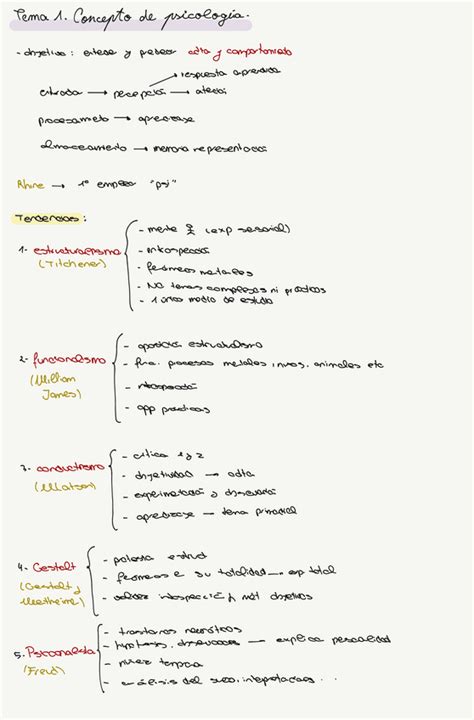 Tema 1. Concepto de psicología.
- objetivo: entender y predecir cdta y comportamiento
respuesta aprendida
entrada → percepción → atención
procesamiento → aprendizaje
almacenamiento → memoria representación
Rhine → 1º emplear "psi"
Tendencias:
- mente (exp sensorial)
- introspección
1- estructuralismo - fenómenos mentales
(Titchener) - NO temas complejos ni prácticos
- 1 único medio de estudio
- oposición estructuralismo
2- funcionalismo - func. procesos mentales innos, animales etc
(William - introspección
James) - app prácticas
- crítica 1 y 2
3- conductismo - objetividad → cdta
(Watson) - experimentación y observación
- aprendizaje → tema principal
4- Gestalt - protesta estruct
(Gestalt y - fenómenos en su totalidad → exp total
Wertheimer) - introspección y mét objetivos
- trastornos neuróticos
5. Psicoanalista - hipnosis, → explica personalidad
(Freud) - niñez temprana
- análisis del interpretaciones...